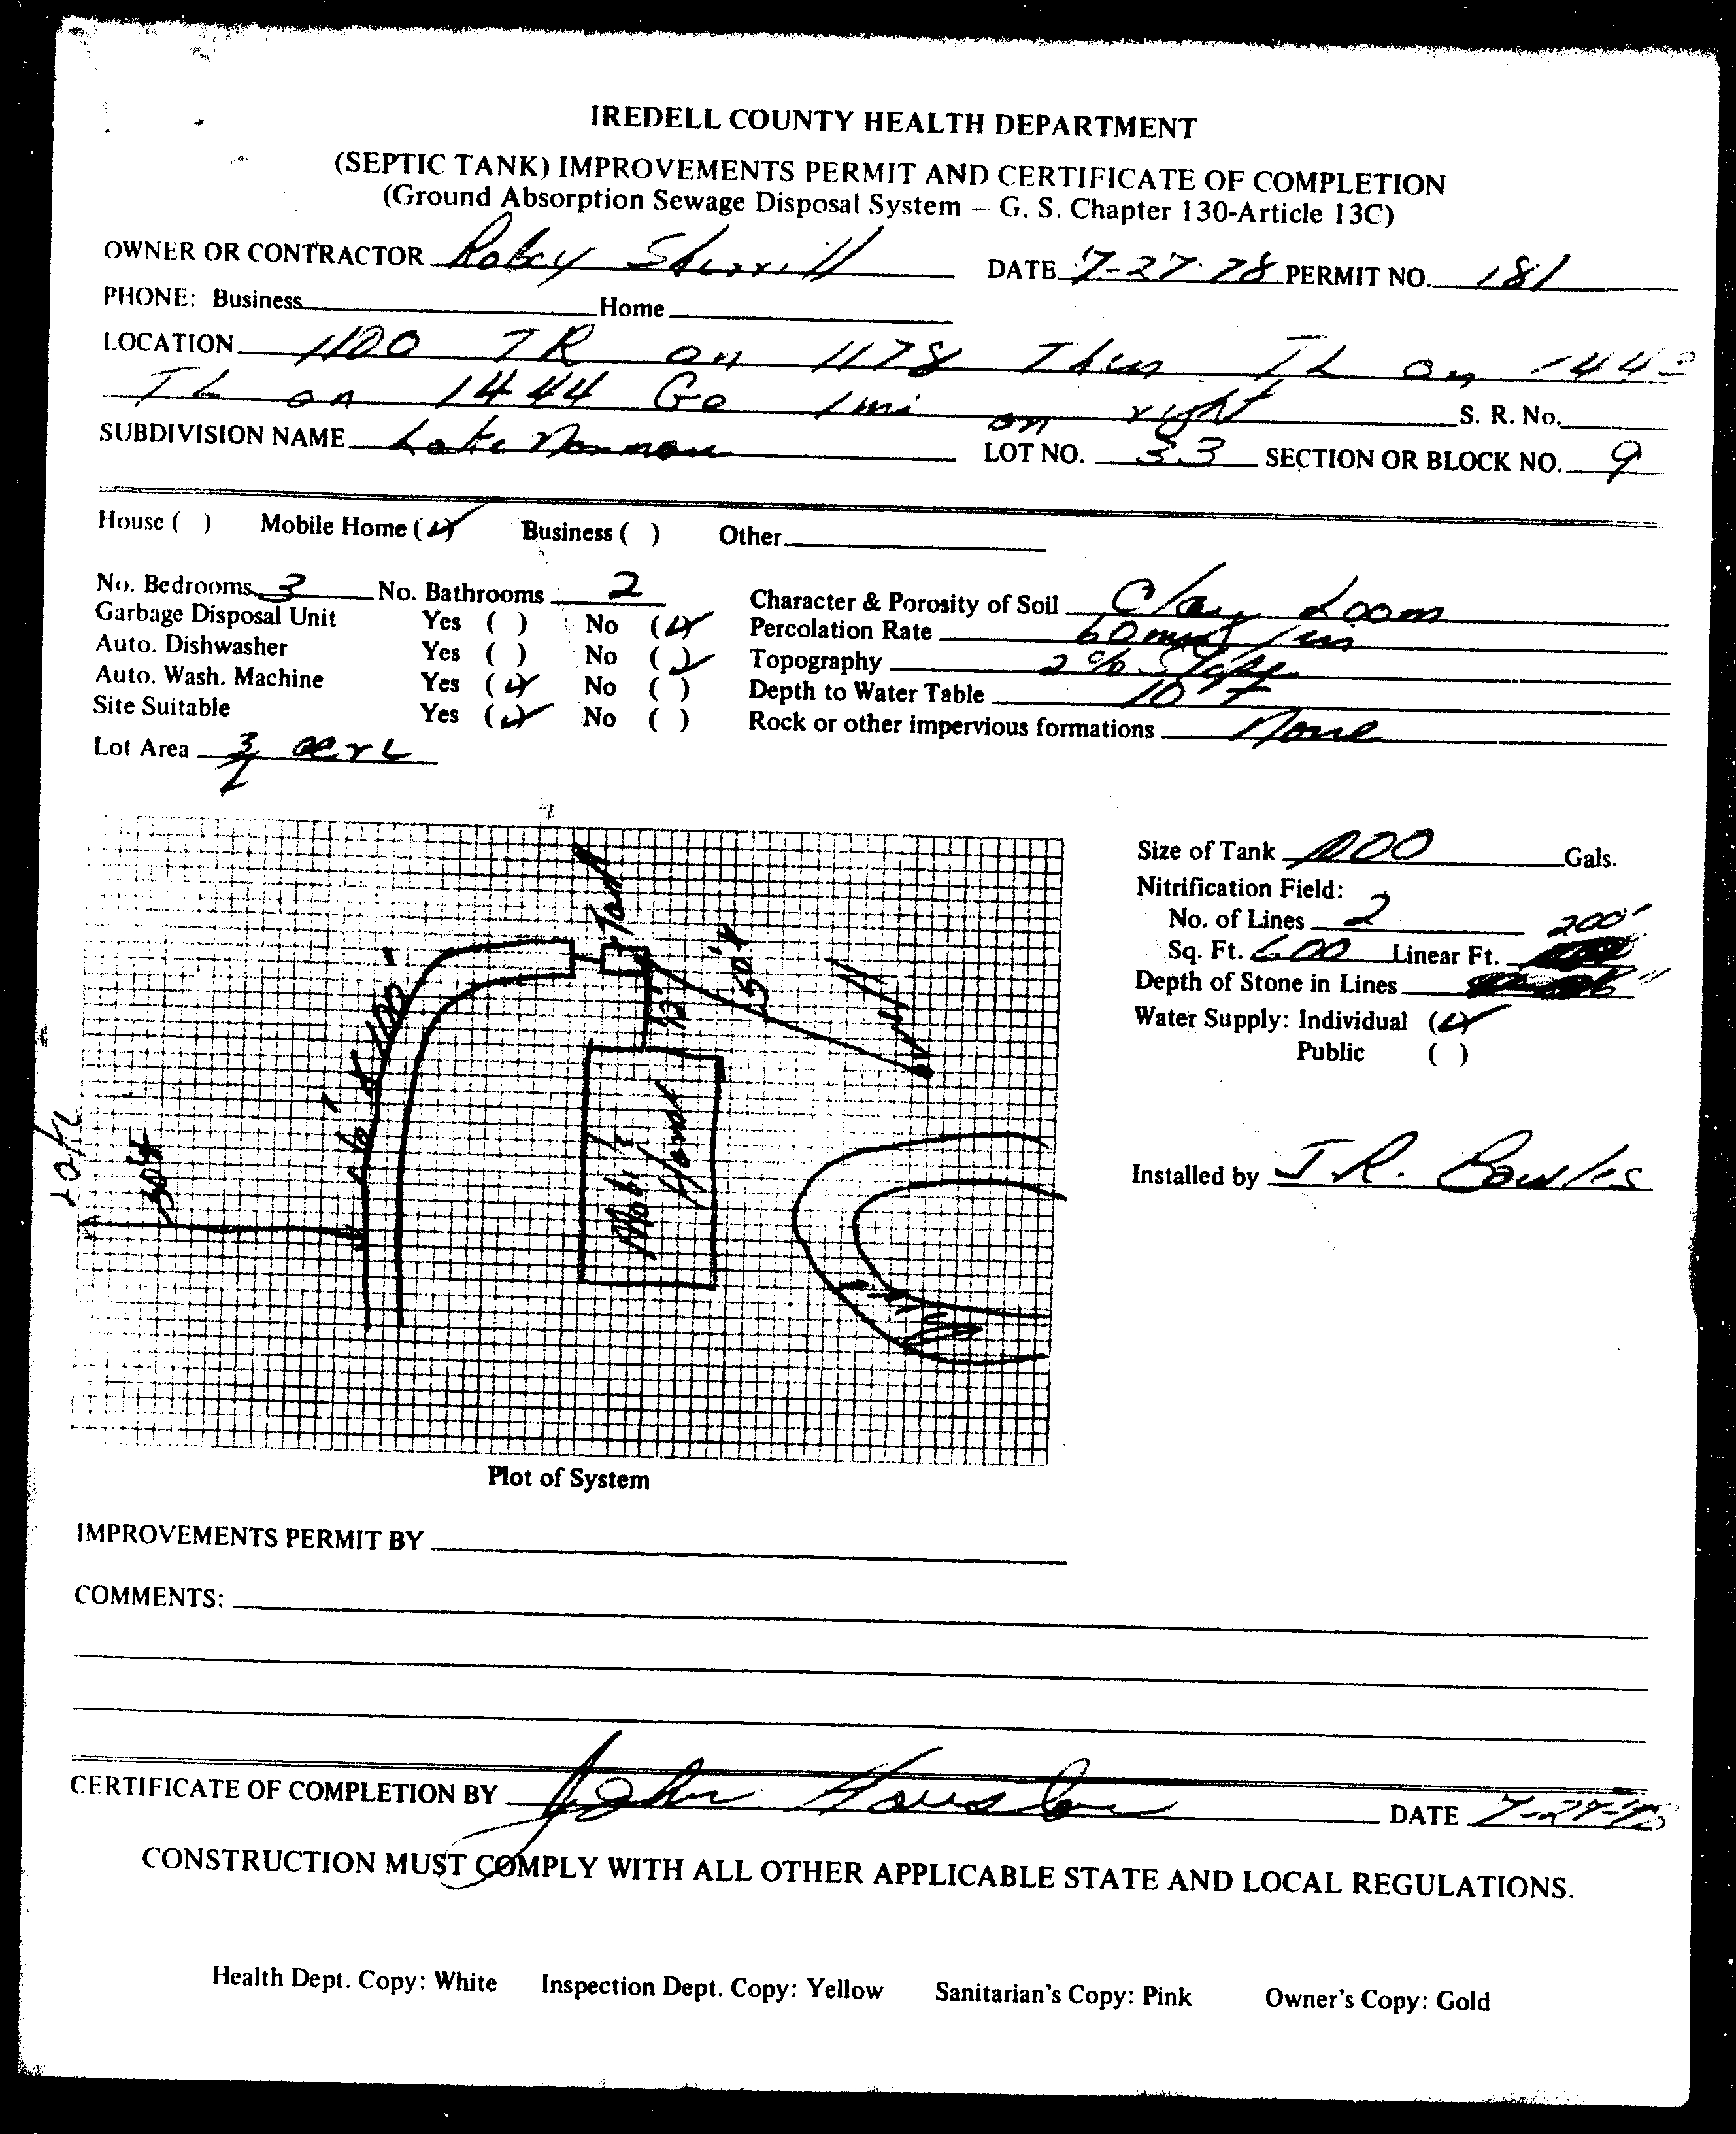 IREDELL COUNTY HEALTH DEPARTMENT
(SEPTIC TANK) IMPROVEMENTS PERMIT AND CERTIFICATE OF COMPLETION
(Ground Absorption Sewage Disposal System – G. S. Chapter 130-Article 13C)
OWNER OR CONTRACTOR Roby Sherrill DATE 7-27-78 PERMIT NO. 181
PHONE: Business Home
LOCATION 1100 TR on 1178 Then TL on 1443
TL on 1444 Go 1 mi on right S. R. No.
SUBDIVISION NAME Lake Norman LOT NO. 33 SECTION OR BLOCK NO. 9
House ( ) Mobile Home (✓) Business ( ) Other
No. Bedrooms 3 No. Bathrooms 2 Character & Porosity of Soil Clay Loom
Garbage Disposal Unit Yes ( ) No (✓) Percolation Rate 60 min / in
Auto. Dishwasher Yes ( ) No (✓) Topography 2% Slope
Auto. Wash. Machine Yes (✓) No ( ) Depth to Water Table 10 FT
Site Suitable Yes (✓) No ( ) Rock or other impervious formations None
Lot Area acre
Size of Tank 1000 Gals.
Nitrification Field:
No. of Lines 2
200'
Sq. Ft. 600 Linear Ft.
Depth of Stone in Lines
Water Supply: Individual (✓)
Public ( )
Installed by J.R. Bowles
Tank
50 ft
100'
Mobile
Home
30 ft
Plot of System
IMPROVEMENTS PERMIT BY
COMMENTS:
CERTIFICATE OF COMPLETION BY John Houston DATE 7-27-78
CONSTRUCTION MUST COMPLY WITH ALL OTHER APPLICABLE STATE AND LOCAL REGULATIONS.
Health Dept. Copy: White Inspection Dept. Copy: Yellow Sanitarian's Copy: Pink Owner's Copy: Gold